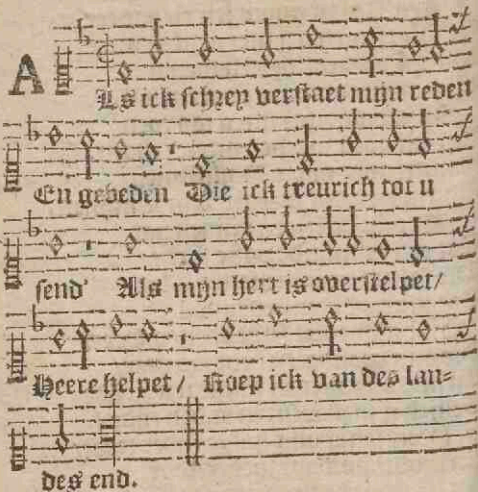 ALs ick schrey verstaet mijn reden
En gebeden Die ick treurich tot u
send' Als mijn hert is overstelpet/
Heere helpet/ Roep ick van des lan-
des end.